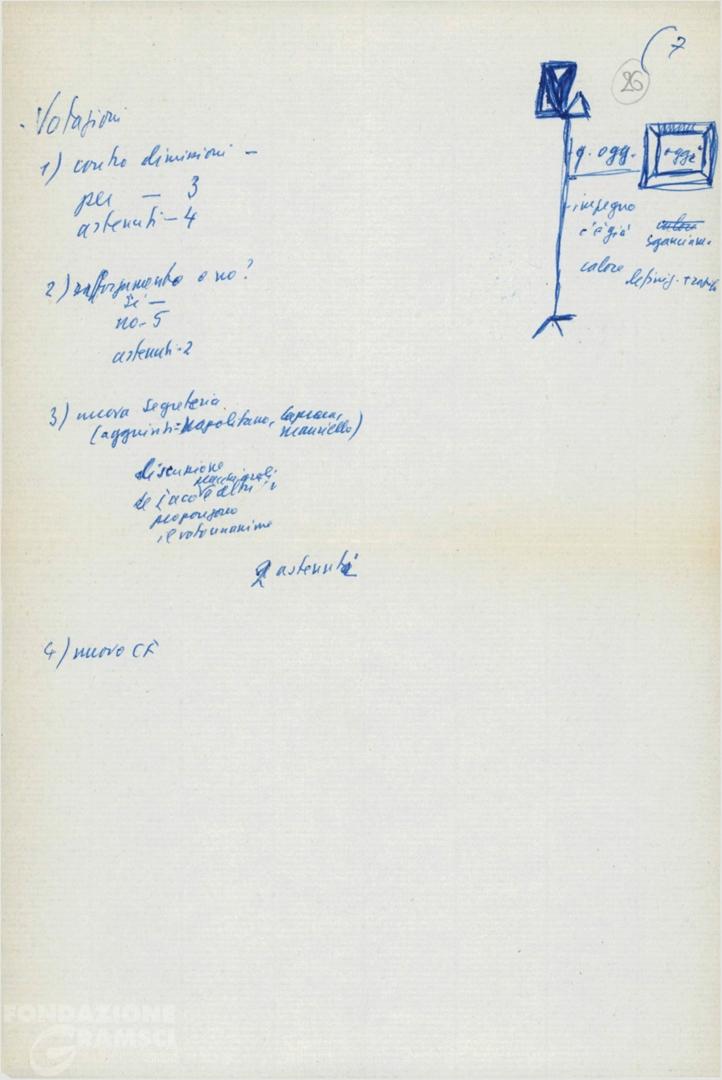 7
26
Votazioni
1) contro dimissioni –
per — 3
astenuti – 4
2) rafforzamento o no?
Sì —
no – 5
astenuti – 2
3) nuova Segreteria
(aggiunti = Napolitano,
discussione
De Jaco e altri
propongono
il voto unanime
2 astenuti
4) nuovo CF
q. ogg.
oggi
impegno
c'è già
calore
FONDAZIONE
GRAMSCI